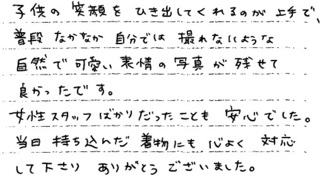 子供の笑顔をひき出してくれるのが上手で、
普段なかなか自分では撮れないような
自然で可愛い表情の写真が残せて
良かったです。
女性スタッフばかりだったことも安心でした。
当日持ち込んだ着物にも心よく対応
して下さりありがとうございました。